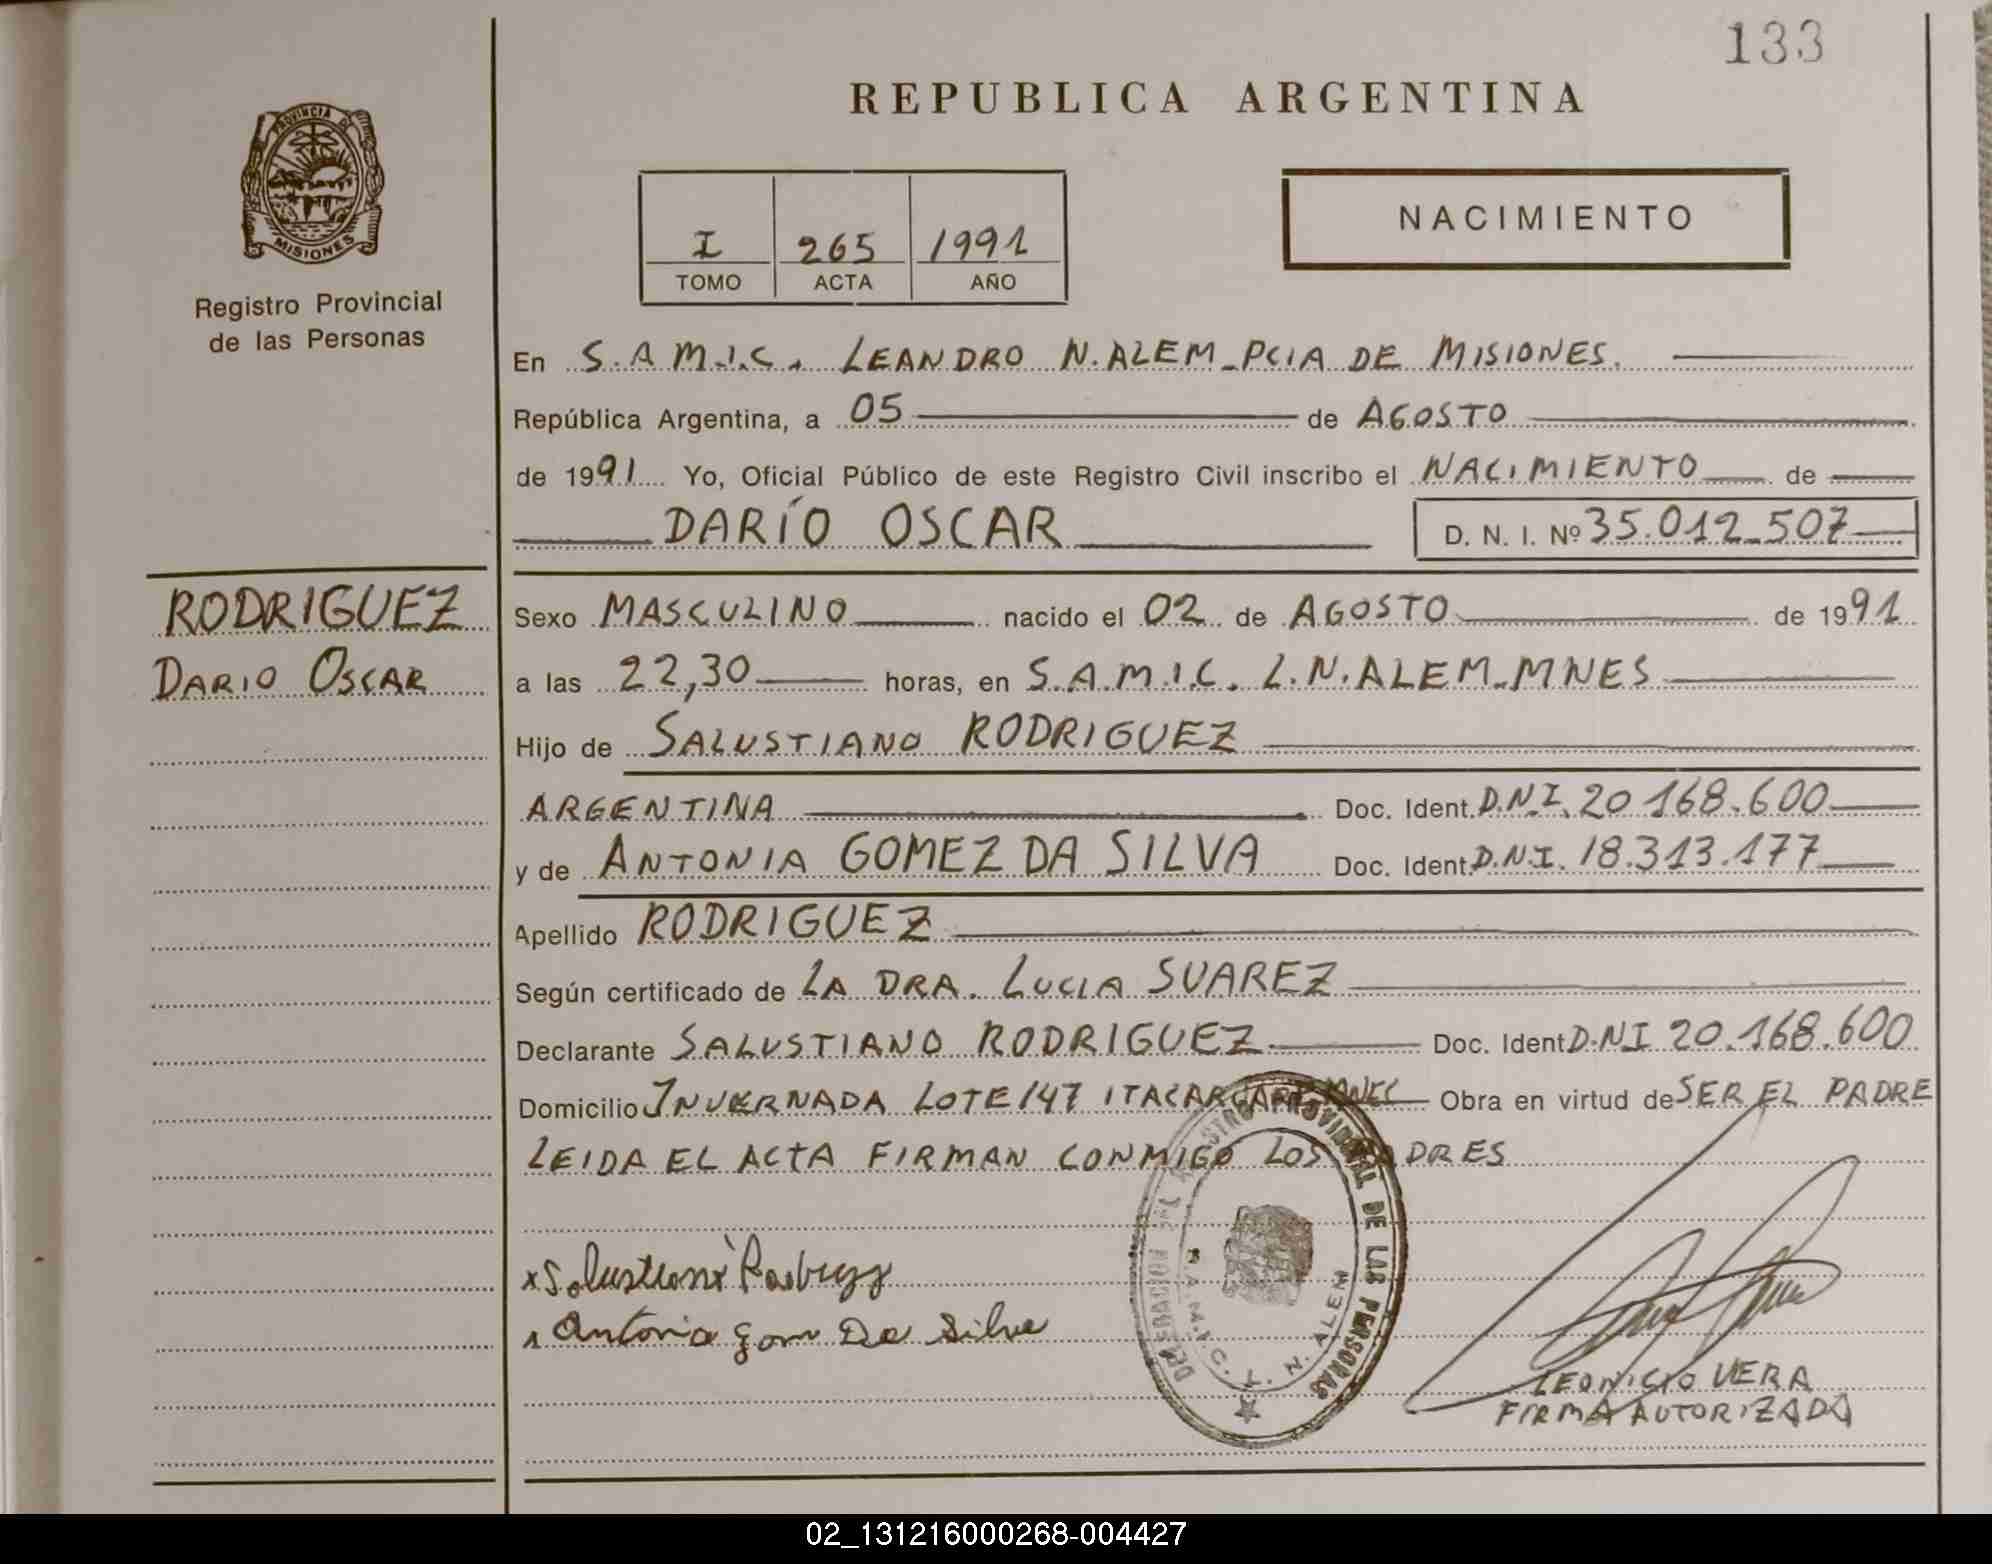 133
REPUBLICA ARGENTINA
PROVINCIA DE
MISIONES
Registro Provincial
de las Personas
I 265 1991
TOMO ACTA AÑO
NACIMIENTO
En S.A.M.I.C. LEANDRO N. ALEM_PCIA DE MISIONES.
República Argentina, a 05 de AGOSTO
de 1991 Yo, Oficial Público de este Registro Civil inscribo el NACIMIENTO de
DARÍO OSCAR D. N. I. Nº 35.012_507
RODRIGUEZ
DARIO OSCAR
Sexo MASCULINO nacido el 02 de AGOSTO de 1991
a las 22,30 horas, en S.A.M.I.C. L.N. ALEM_MNES
Hijo de SALUSTIANO RODRIGUEZ
ARGENTINA Doc. Ident. D.N.I. 20.168.600
y de ANTONIA GOMEZ DA SILVA Doc. Ident. D.N.I. 18.313.177
Apellido RODRIGUEZ
Según certificado de LA DRA. LUCIA SUAREZ
Declarante SALUSTIANO RODRIGUEZ Doc. Ident D.NI 20.168.600
Domicilio INVERNADA LOTE 147 Obra en virtud de SER EL PADRE
LEIDA EL ACTA FIRMAN CONMIGO LOS PADRES
DELEGACION DEL REGISTRO PROVINCIAL DE LAS PERSONAS
S.A.M.I.C. L. N. ALEM
x Salustiano
Antonia gom Da Silva
LEONICIO VERA
FIRMA AUTORIZADA
02_131216000268-004427